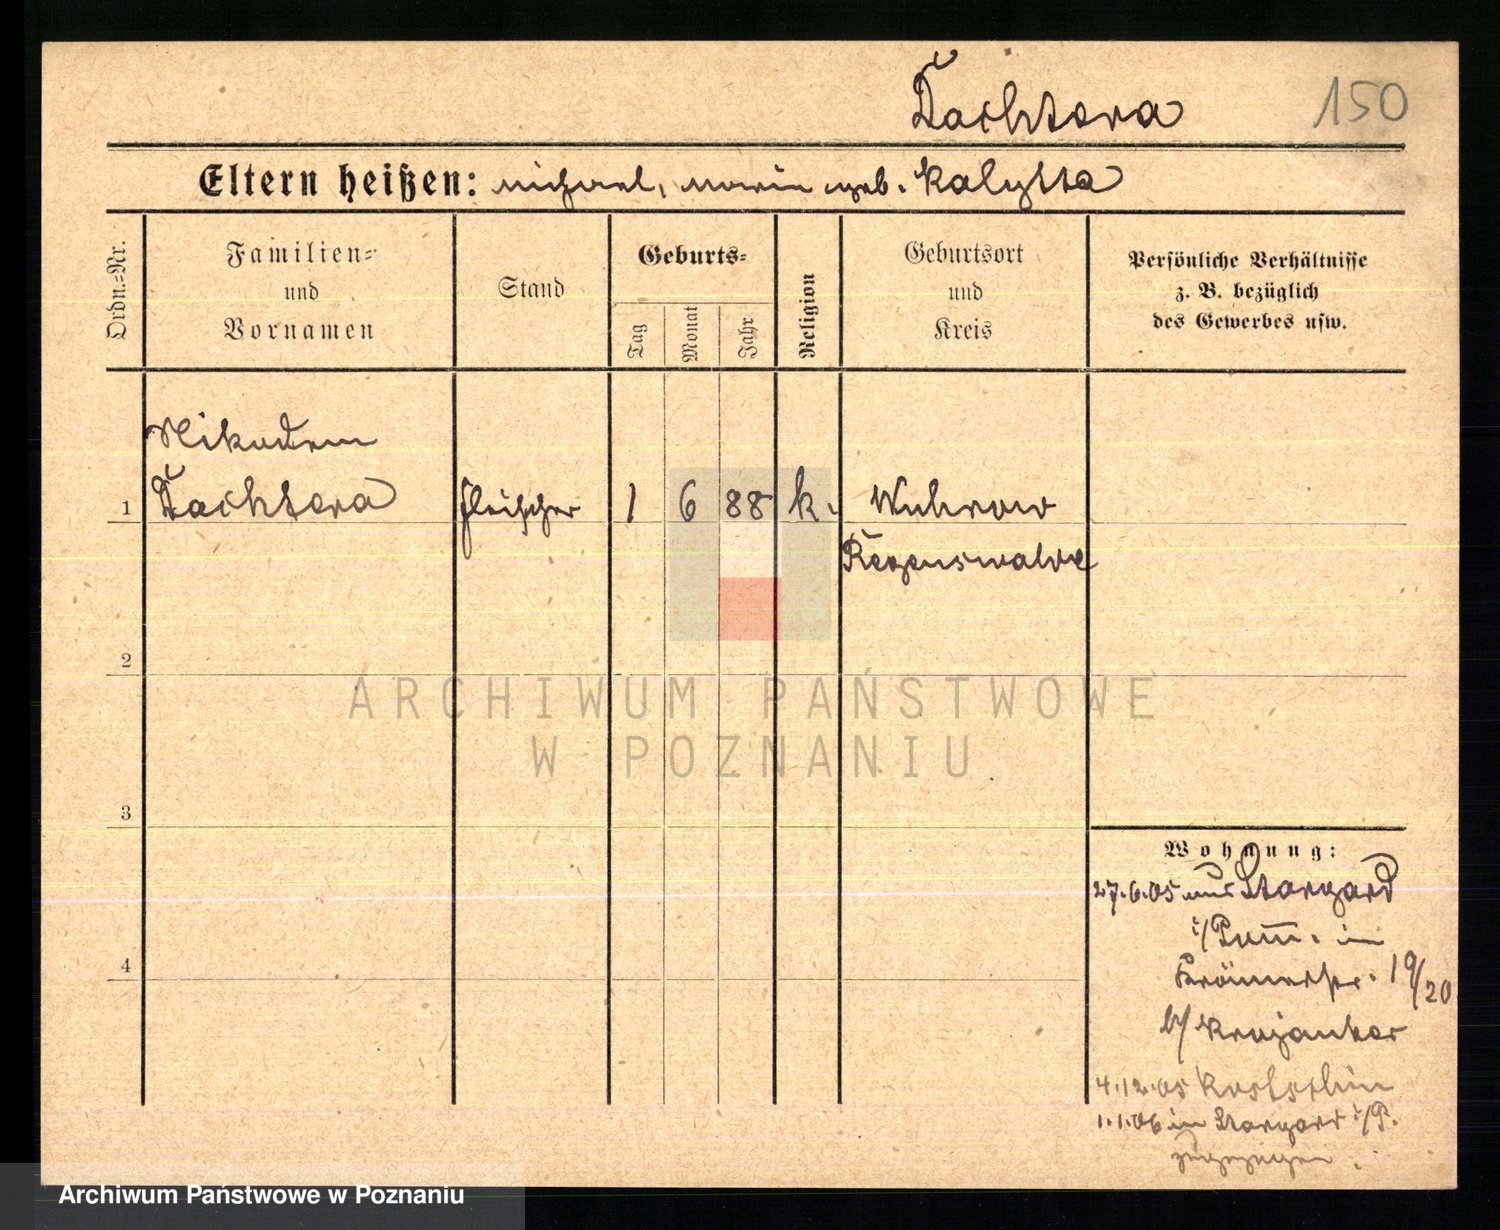 Tachtera
150
Eltern heißen: Michael, Marie geb. Kalytta
Ordn.-Nr.
Familien-
und
Vornamen
Stand
Geburts-
Tag
Monat
Jahr
Religion
Geburtsort
und
Kreis
Persönliche Verhältnisse
z. B. bezüglich
des Gewerbes usw.
Nikodem
1 Tachtera Fleischer 1 6 88 k. Wuhrow
Regenswalde
2
ARCHIWUM PAŃSTWOWE
W POZNANIU
3
Wohnung:
27.6.05 aus Stargard
i/Pom. in
4
19/20
b/ Krojanker
4.12.05
1.1.06 in Stargard i/P.
zugezogen.
Archiwum Państwowe w Poznaniu